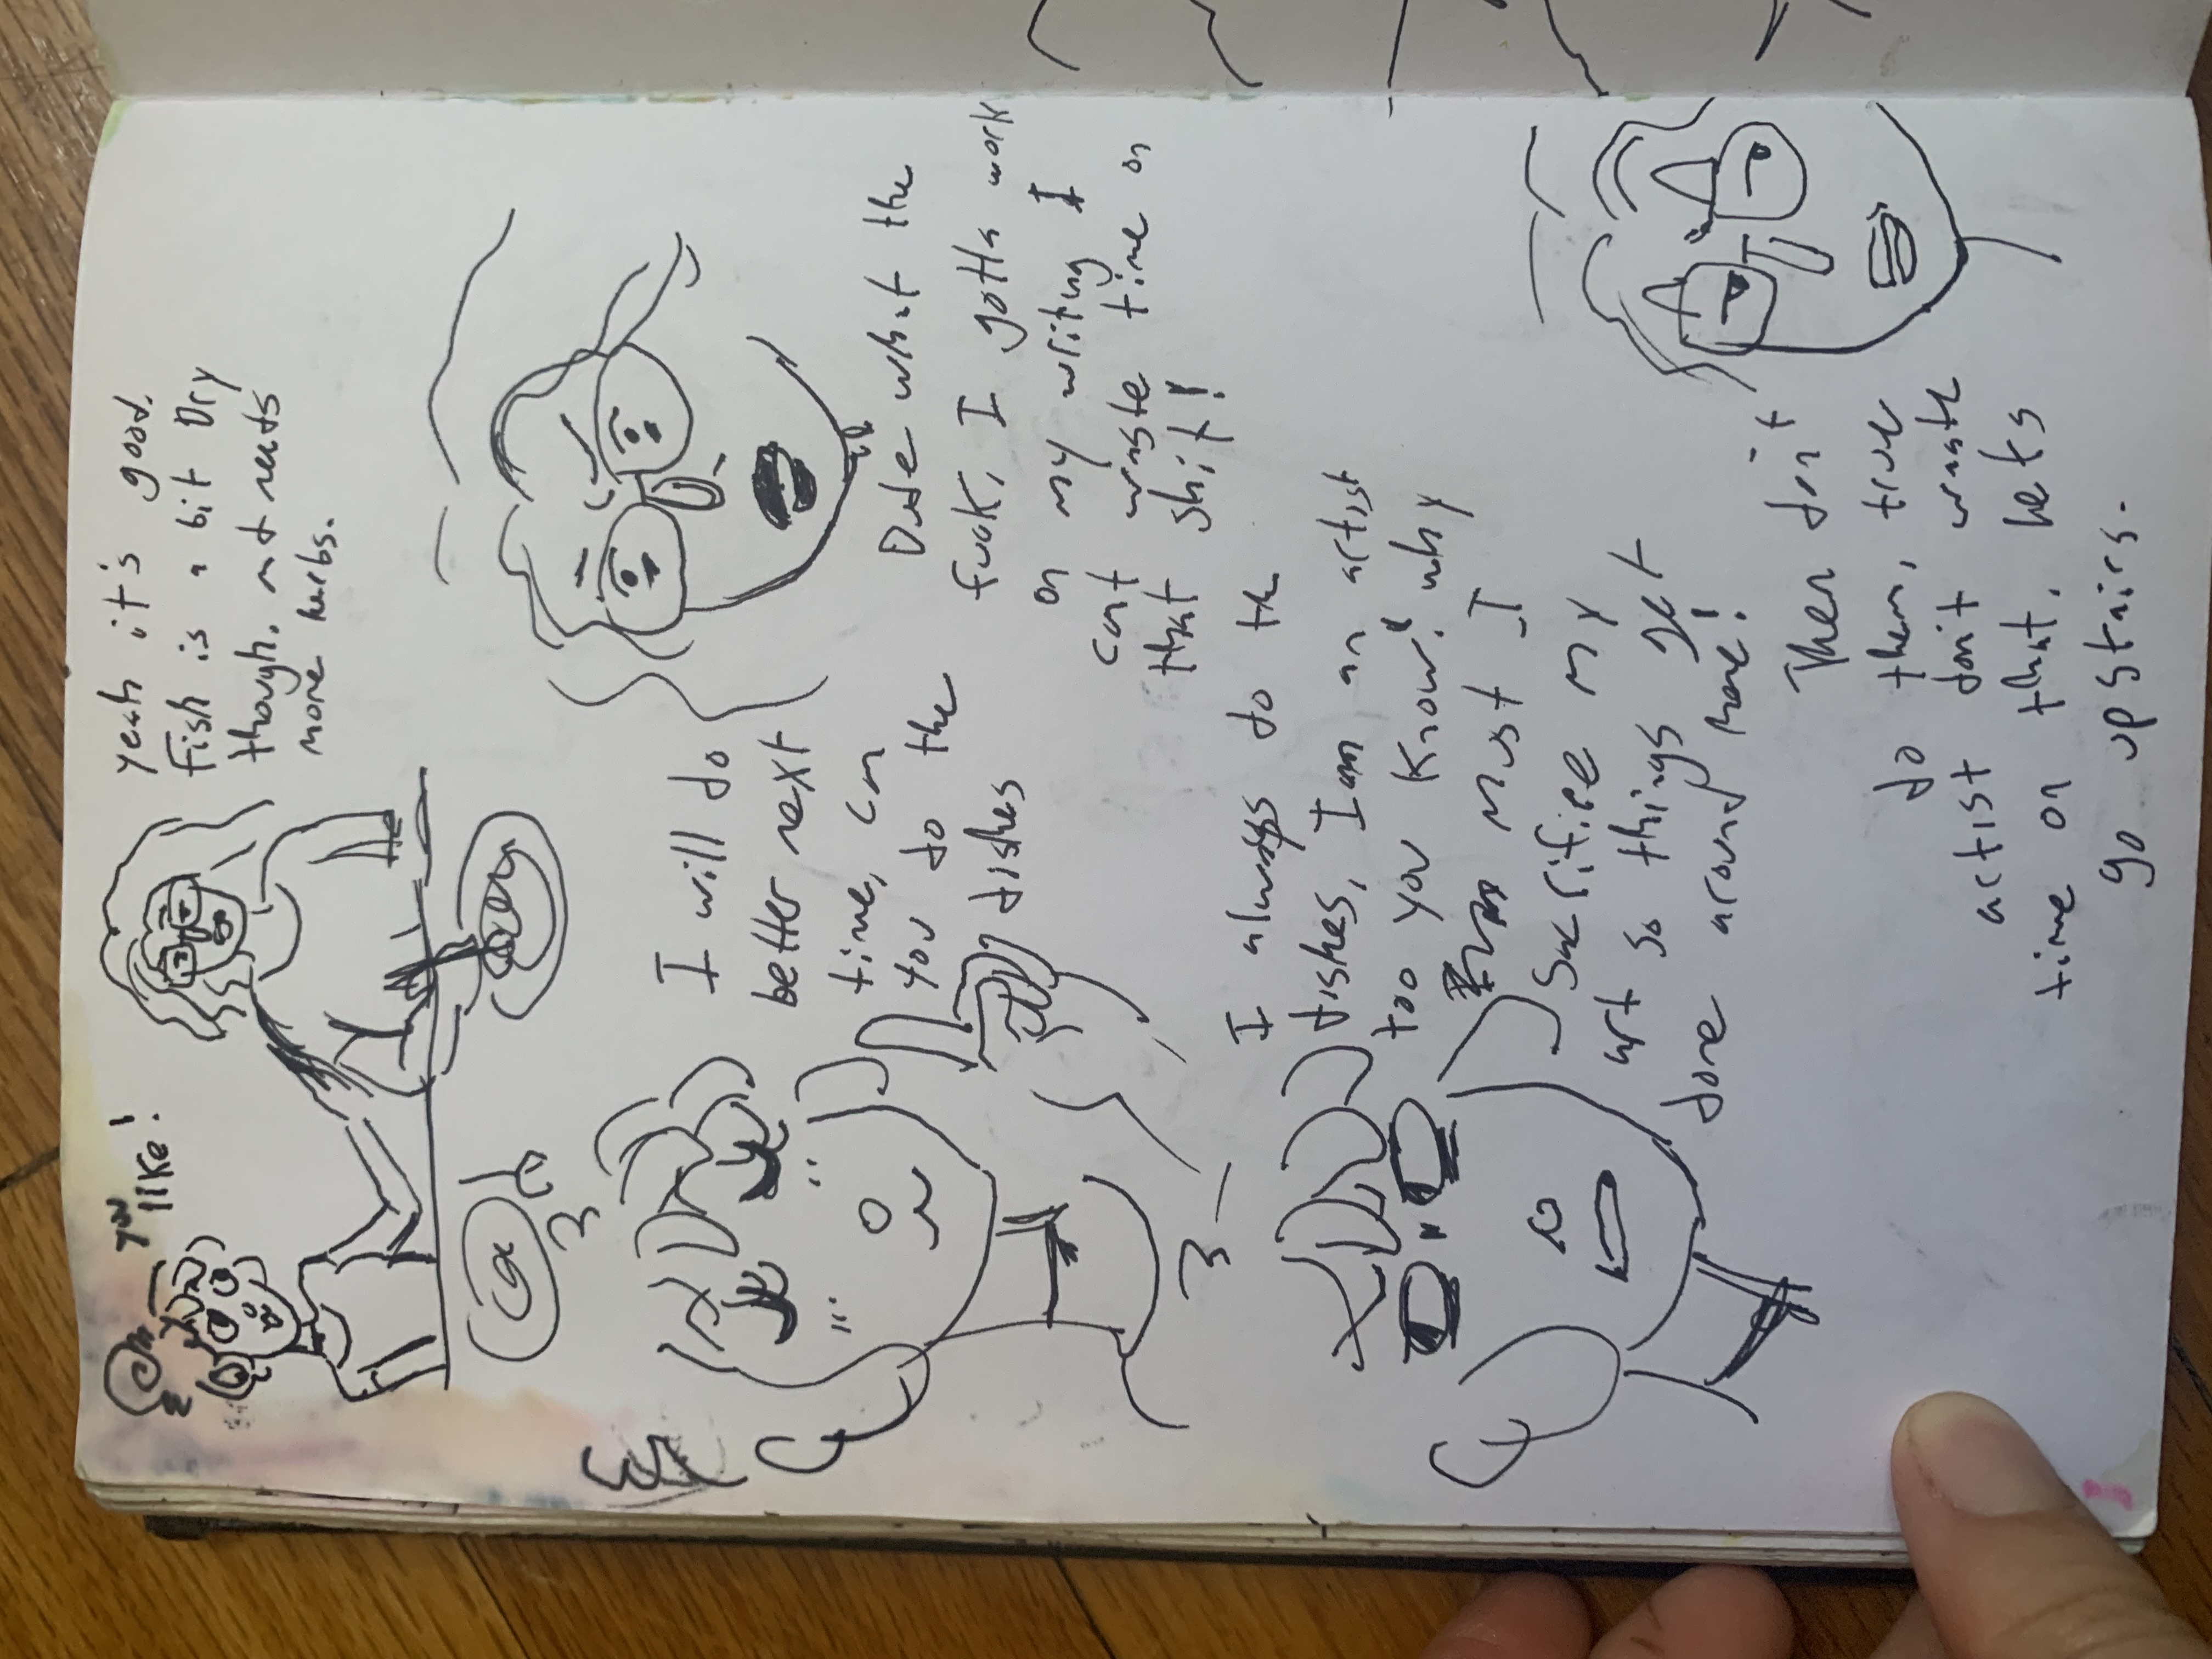 you
like!
yeah it's good.
Fish is a bit Dry
though, nd needs
more herbs.
I will do
better next
time, can
you do the
dishes
Dude what the
fuck, I gotta work
on my writing I
cant waste time on
that shit!
I always do the
dishes, I am an artist
too you know! why
must I
Sacrifice my
art so things get
done around here!
Then don't
do them, true
artist don't waste
time on that, lets
go upstairs.